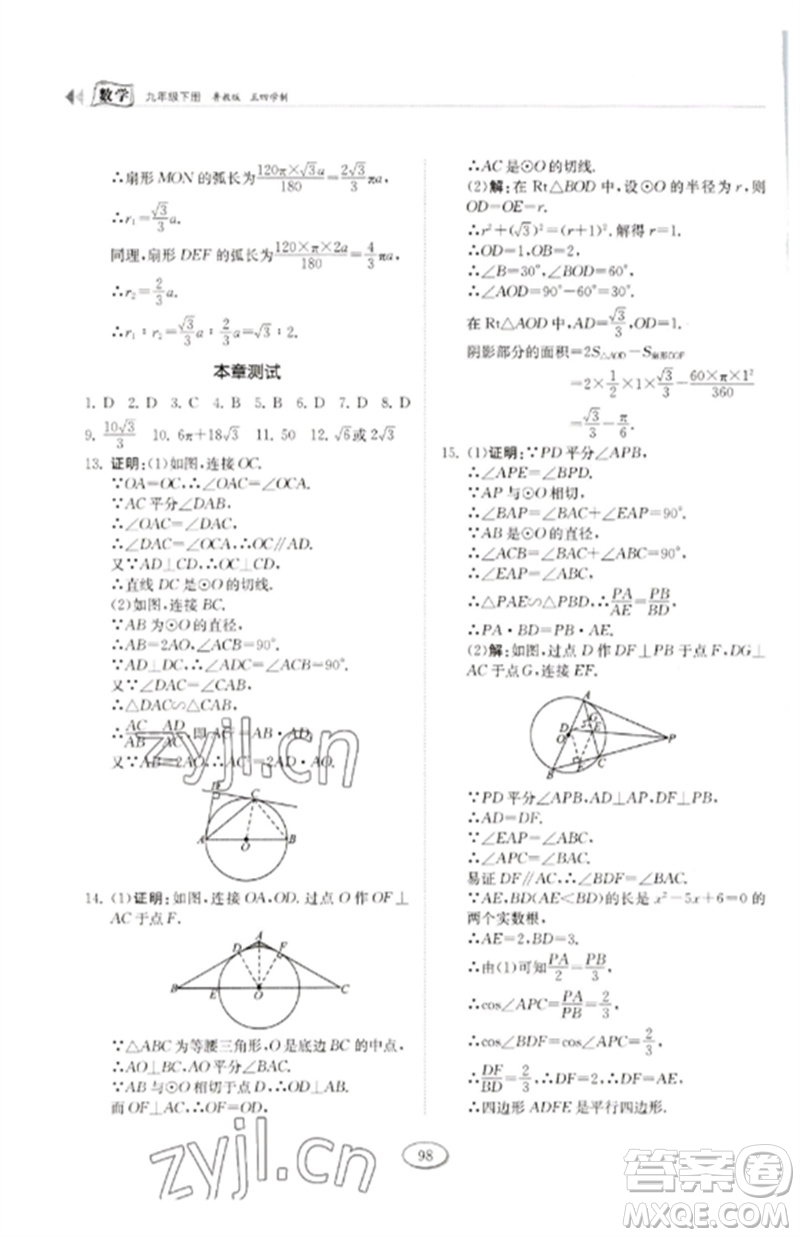 数学 九年级下册 鲁教版 五四学制
∴扇形 MON 的弧长为\frac{120π×\sqrt{3}a}{180}=\frac{2\sqrt{3}}{3}πa,
∴r₁=\frac{\sqrt{3}}{3}a.
同理,扇形 DEF 的弧长为\frac{120×π×2a}{180}=\frac{4}{3}πa,
∴r₂=\frac{2}{3}a.
∴r₁∶r₂=\frac{\sqrt{3}}{3}a∶\frac{2}{3}a=\sqrt{3}∶2.
本章测试
1. D 2. D 3. C 4. B 5. B 6. D 7. D 8. D
9. \frac{10\sqrt{3}}{3} 10. 6π+18\sqrt{3} 11. 50 12. \sqrt{6}或 2\sqrt{3}
13. 证明:(1)如图,连接 OC.
∵OA=OC,∴∠OAC=∠OCA.
∵AC 平分∠DAB,
∴∠OAC=∠DAC,
∴∠DAC=∠OCA,∴OC∥AD.
又∵AD⊥CD,∴OC⊥CD,
∴直线 DC 是⊙O 的切线.
(2)如图,连接 BC.
∵AB 为⊙O 的直径,
∴AB=2AO,∠ACB=90°.
∵AD⊥DC,∴∠ADC=∠ACB=90°.
又∵∠DAC=∠CAB,
∴△DAC∽△CAB,
∴\frac{AC}{AB}=\frac{AD}{AC},即 AC²=AB·AD,
又∵AB=2AO,∴AC²=2AD·AO.
D C
A O B
14. (1)证明:如图,连接 OA,OD. 过点 O 作 OF⊥
AC 于点 F.
A
D F
B E O C
∵△ABC 为等腰三角形,O 是底边 BC 的中点,
∴AO⊥BC,AO 平分∠BAC.
∵AB 与⊙O 相切于点 D,∴OD⊥AB.
而 OF⊥AC,∴OF=OD,
∴AC 是⊙O 的切线.
(2)解:在 Rt△BOD 中,设⊙O 的半径为 r,则
OD=OE=r.
∴r²+(\sqrt{3})²=(r+1)². 解得 r=1.
∴OD=1,OB=2,
∴∠B=30°,∠BOD=60°.
∴∠AOD=90°-60°=30°.
在 Rt△AOD 中,AD=\frac{\sqrt{3}}{3},OD=1.
阴影部分的面积=2S△AOD-S扇形DOF
=2×\frac{1}{2}×1×\frac{\sqrt{3}}{3}-\frac{60×π×1²}{360}
=\frac{\sqrt{3}}{3}-\frac{π}{6}.
15. (1)证明:∵PD 平分∠APB,
∴∠APE=∠BPD.
∵AP 与⊙O 相切,
∴∠BAP=∠BAC+∠EAP=90°.
∵AB 是⊙O 的直径,
∴∠ACB=∠BAC+∠B=90°,
∴∠EAP=∠B,
∴△PAE∽△PBD,∴\frac{PA}{AE}=\frac{PB}{BD},
∴PA·BD=PB·AE.
(2)解:如图,过点 D 作 DF⊥PB 于点 F,DG⊥
AC 于点 G,连接 EF.
A
D G E
O P
B F C
∵PD 平分∠APB,AD⊥AP,DF⊥PB,
∴AD=DF.
∵∠EAP=∠B,
∴∠APC=∠BAC.
易证 DF∥AC,∴∠BDF=∠BAC.
∵AE,BD(AE<BD)的长是 x²-5x+6=0 的
两个实数根,
∴AE=2,BD=3.
∴由(1)可知\frac{PA}{2}=\frac{PB}{3},
∴cos∠APC=\frac{PA}{PB}=\frac{2}{3},
∴cos∠BDF=cos∠APC=\frac{2}{3},
∴\frac{DF}{BD}=\frac{2}{3},∴DF=2,∴DF=AE,
∴四边形 ADFE 是平行四边形.
98
zyjl.cn
zyjl.cn
答案卷
MXQE.COM